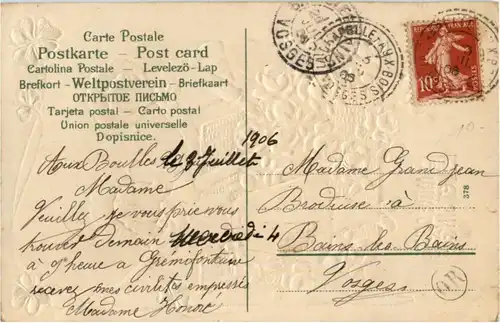 Carte Postale
Postkarte - Post card
Cartolina Postale - Levelező-Lap
Brefkort - Weltpostverein - Briefkaart
ОТКРЫТОЕ ПИСЬМО
Tarjeta postal - Carto postal
Union postale universelle
Dopisnice.
VOSGES
10c
10-
Aux Boulles le 2 Juillet 1906
Madame
Veuillez je vous prie vous
trouver Demain Mercredi 4
à 9h heure a Grémifontaine
recevez mes civilités empressés
Madame Honoré
Madame Grandjean
Brodeuse à
Bains-les-Bains
Vosges
OR
378